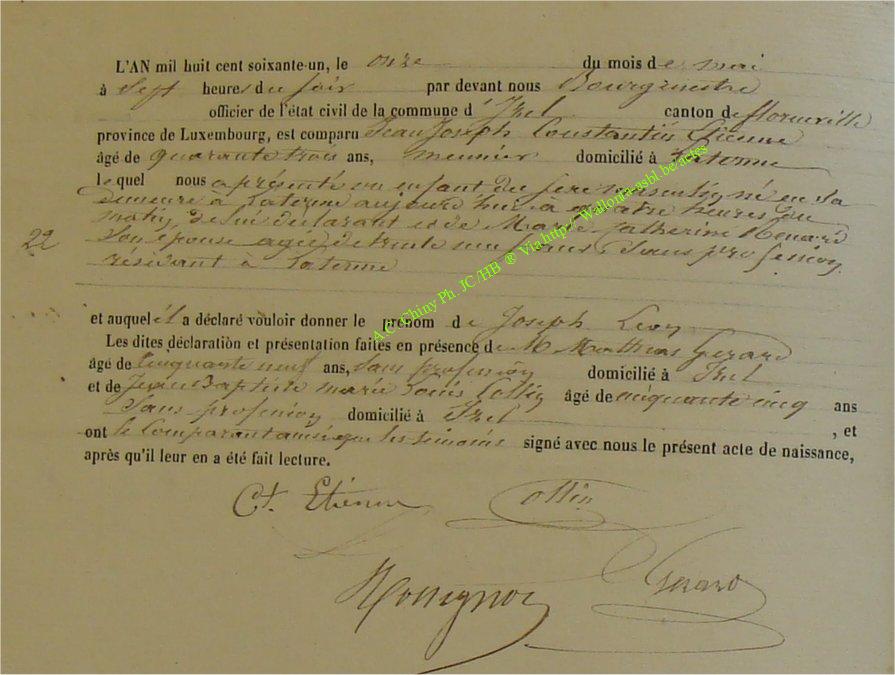 L'AN mil huit cent soixante-un, le onze du mois de mai
à sept heures du soir par devant nous Bourgmestre
officier de l'état civil de la commune d'Izel canton de florenville
province de Luxembourg, est comparu Jean Joseph Constantin Etienne
âgé de quarante trois ans, meunier domicilié à
lequel nous a présenté un enfant du sexe masculin, né en sa
demeure à aujourd'hui à quatre heures du
matin, de lui déclarant et de Marie Catherine Renard
22 son épouse agée de trente un ans, sans profession
résidant à
et auquel il a déclaré vouloir donner le prénom de Joseph Léon
Les dites déclaration et présentation faites en présence de M Mathias Gerard
âgé de Cinquante neuf ans, sans profession domicilié à Izel
et de Jean Baptiste marie Louis Collin âgé de cinquante cinq ans
sans profession domicilié à Izel , et
ont le Comparant ainsi que les témoins signé avec nous le présent acte de naissance,
après qu'il leur en a été fait lecture.
Ct. Etienne Collin
Rossignon Gerard
A.C. Chiny Ph. JC/HB ® Via http/ Wallonia-asbl.be/actes